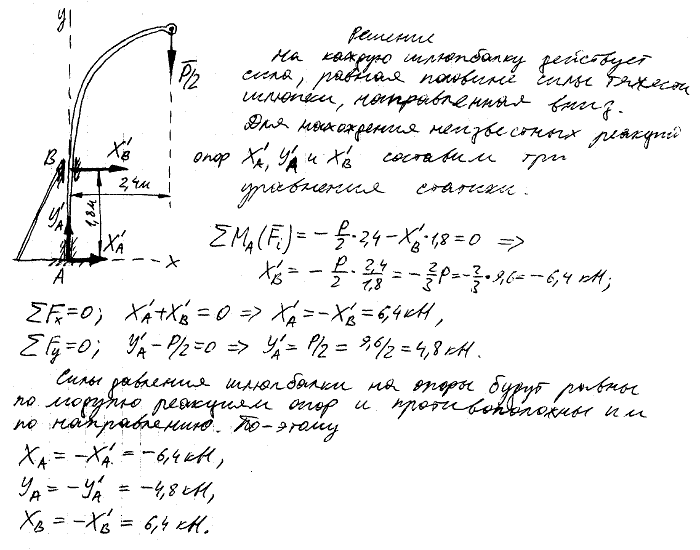 y
Решение
На каждую шлюпбалку действует
сила, равная половине силы тяжести
шлюпки, направленная вниз.
Для нахождения неизвестных реакций
опор X'_A, Y'_A и X'_B составим три
уравнения статики.
P̅/2
B
X'_B
2,4м
1,8м
Y'_A
X'_A
A
x
ΣM_A(F̅_i) = −P/2·2,4 − X'_B·1,8 = 0 =>
X'_B = −P/2·2,4/1,8 = −2/3P = −2/3·9,6 = −6,4 кН;
ΣF_x=0; X'_A+X'_B = 0 => X'_A = −X'_B = 6,4 кН,
ΣF_y=0; Y'_A − P/2 = 0 => Y'_A = P/2 = 9,6/2 = 4,8 кН.
Силы давления шлюпбалки на опоры будут равны
по модулю реакциям опор и противоположны им
по направлению. По-этому
X_A = −X'_A = −6,4 кН,
Y_A = −Y'_A = −4,8 кН,
X_B = −X'_B = 6,4 кН.